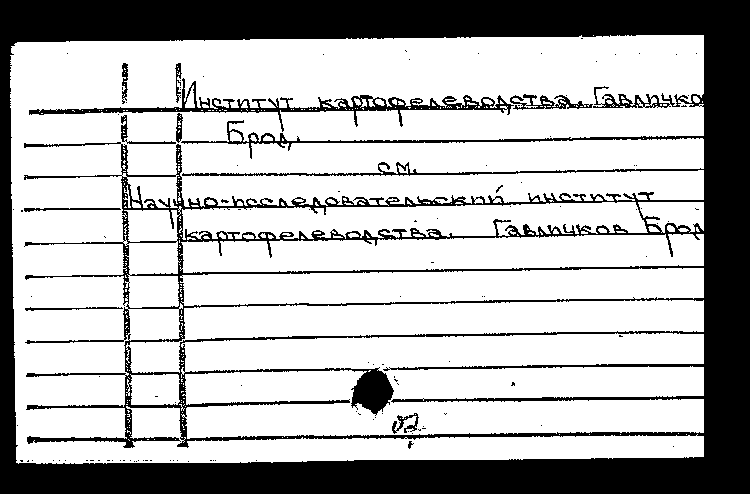 Институт картофелеводства. Гавличко
Брод.
см.
Научно-исследовательский институт
картофелеводства. Гавличков Брод